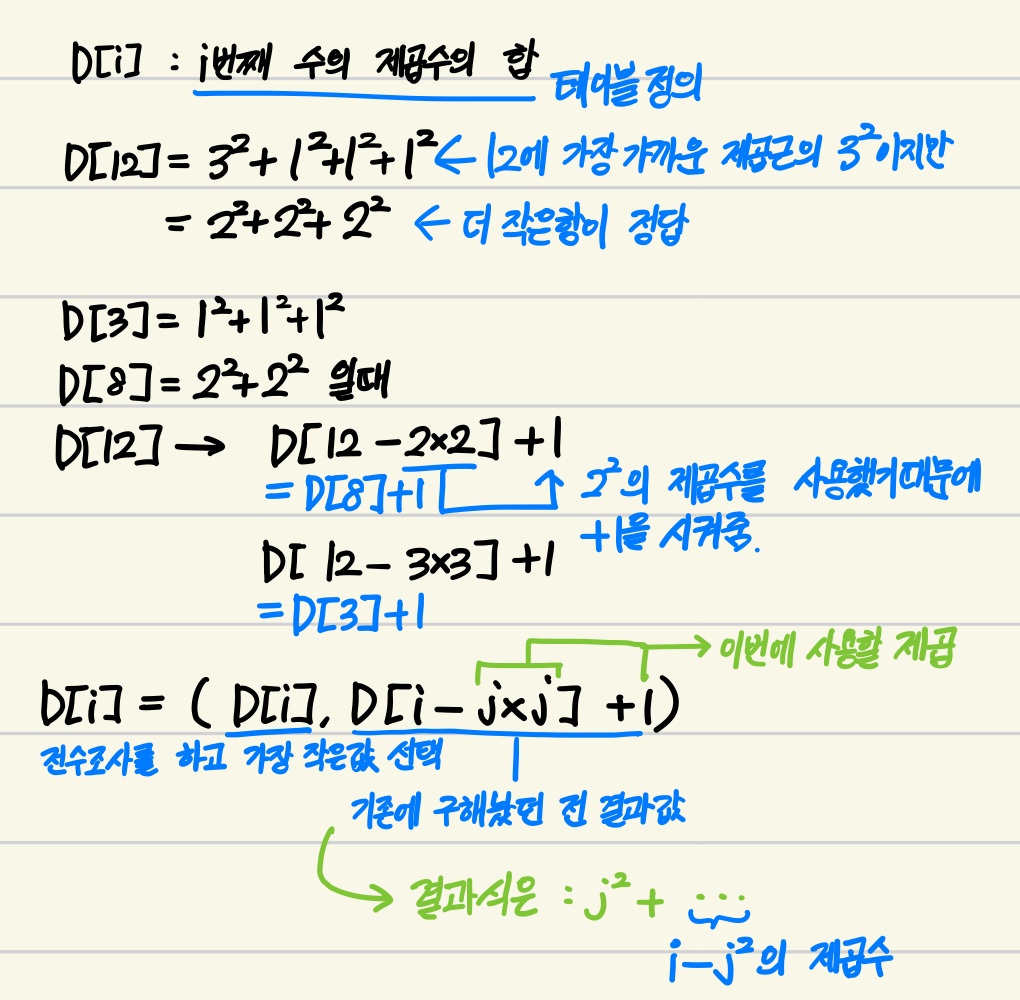 D[i] : i번째 수의 제곱수의 합 테이블 정의
D[12] = 3²+1²+1²+1² ← 12에 가장 가까운 제곱근의 3²이지만
= 2²+2²+2² ← 더 작은항이 정답
D[3] = 1²+1²+1²
D[8] = 2²+2² 일때
D[12] → D[12-2×2]+1
= D[8]+1 ↑ 2²의 제곱수를 사용했기때문에
+1을 시켜줌.
D[12-3×3]+1
= D[3]+1
→ 이번에 사용할 제곱
D[i] = ( D[i], D[i-j×j] +1)
전수조사를 하고 가장 작은값 선택
기존에 구해놨던 전 결과값
→ 결과식은 : j² + ...
i-j²의 제곱수